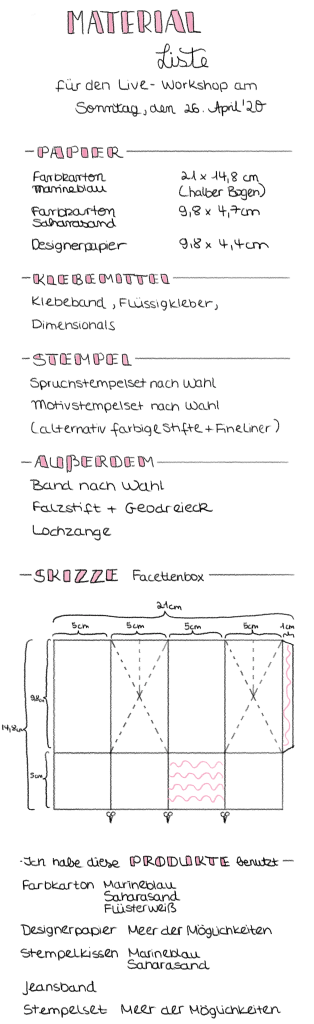 MATERIAL
Liste
für den Live-Workshop am
Sonntag, den 26. April '20
PAPIER
Farbkarton 21 x 14,8 cm
marineblau (halber Bogen)
Farbkarton 9,8 x 4,7cm
Saharasand
Designerpapier 9,8 x 4,4cm
KLEBEMITTEL
Klebeband, Flüssigkleber,
Dimensionals
STEMPEL
Spruchstempelset nach Wahl
Motivstempelset nach Wahl
(alternativ farbige Stifte + Fineliner)
AUßERDEM
Band nach Wahl
Falzstift + Geodreieck
Lochzange
SKIZZE Facettenbox
21cm
5cm 5cm 5cm 5cm 1cm
14,8cm
5cm
Ich habe diese PRODUKTE benutzt
Farbkarton Marineblau
Saharasand
Flüsterweiß
Designerpapier Meer der Möglichkeiten
Stempelkissen Marineblau
Saharasand
Jeansband
Stempelset Meer der Möglichkeiten